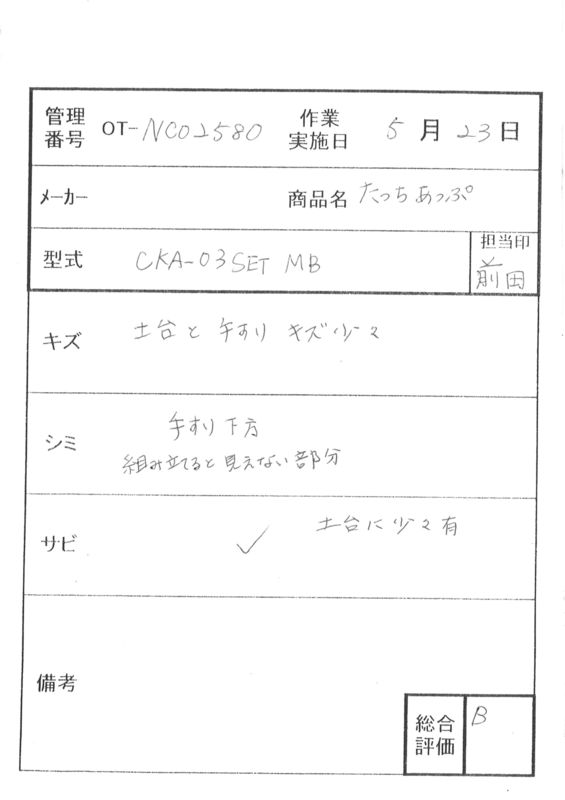 管理番号 OT-NCO2580 作業実施日 5月23日
メーカー 商品名 たっちあっぷ
型式 CKA-03SET MB 担当印 前田
キズ 土台と手すり キズ少々
シミ 手すり下方
組み立てると見えない部分
サビ ✓ 土台に少々有
備考
総合評価 B